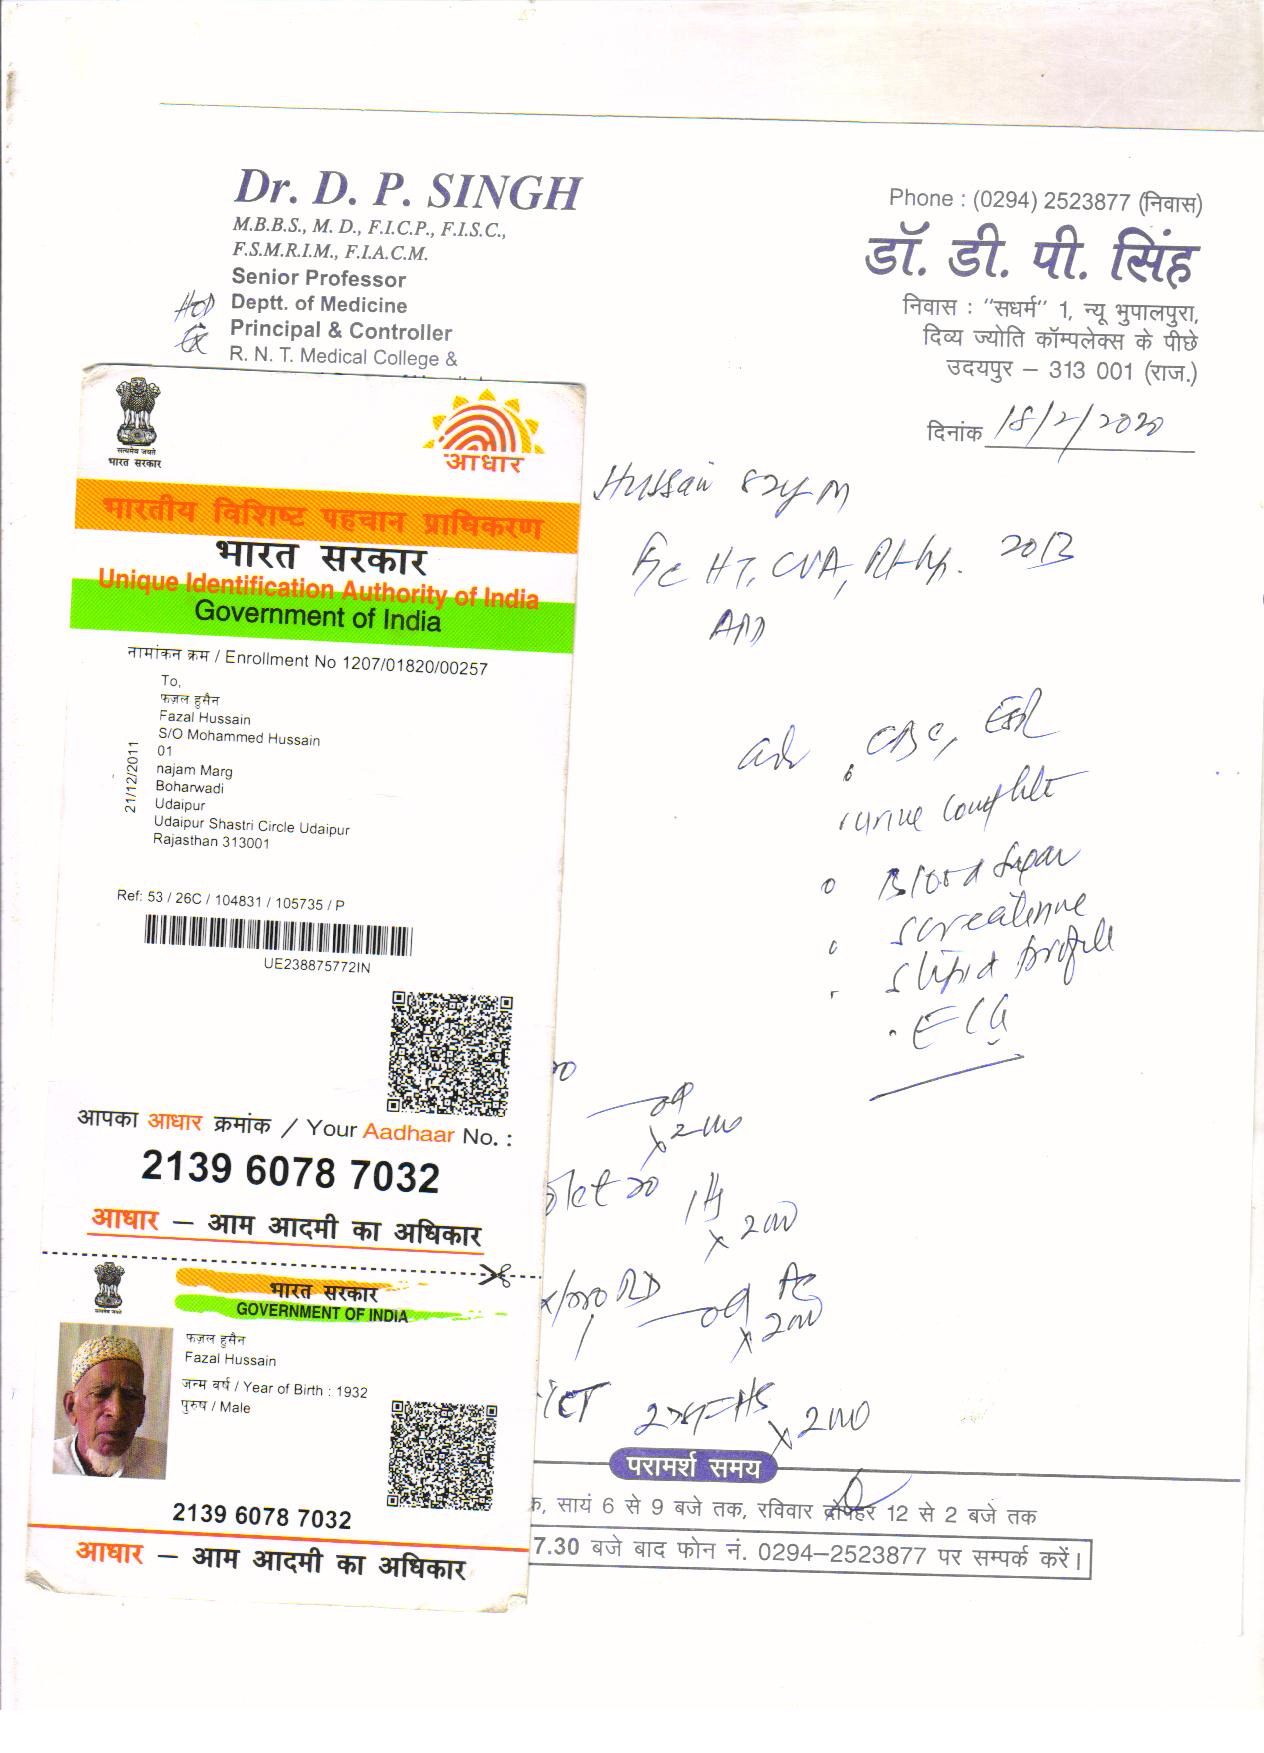 Dr. D. P. SINGH
M.B.B.S., M. D., F.I.C.P., F.I.S.C.,
F.S.M.R.I.M., F.I.A.C.M.
Senior Professor
HOD Deptt. of Medicine
Principal & Controller
R. N. T. Medical College &
Phone : (0294) 2523877 (निवास)
डॉ. डी. पी. सिंह
निवास : "सधर्म" 1, न्यू भुपालपुरा,
दिव्य ज्योति कॉम्पलेक्स के पीछे
उदयपुर – 313 001 (राज.)
दिनांक 18/2/2020
Hussain 82y M
HT, CVA, 2013
CBC, ESR
urine complete
Blood sugar
S creatinine
S lipid profile
ECG
सत्यमेव जयते
भारत सरकार
आधार
भारतीय विशिष्ट पहचान प्राधिकरण
भारत सरकार
Unique Identification Authority of India
Government of India
नामांकन क्रम / Enrollment No 1207/01820/00257
To,
फ़ज़ल हुसैन
Fazal Hussain
S/O Mohammed Hussain
01
najam Marg
Boharwadi
Udaipur
Udaipur Shastri Circle Udaipur
Rajasthan 313001
21/12/2011
Ref: 53 / 26C / 104831 / 105735 / P
UE238875772IN
आपका आधार क्रमांक / Your Aadhaar No. :
2139 6078 7032
आधार – आम आदमी का अधिकार
भारत सरकार
GOVERNMENT OF INDIA
फ़ज़ल हुसैन
Fazal Hussain
जन्म वर्ष / Year of Birth : 1932
पुरुष / Male
2139 6078 7032
आधार – आम आदमी का अधिकार
परामर्श समय
सायं 6 से 9 बजे तक, रविवार दोपहर 12 से 2 बजे तक
7.30 बजे बाद फोन नं. 0294–2523877 पर सम्पर्क करें।